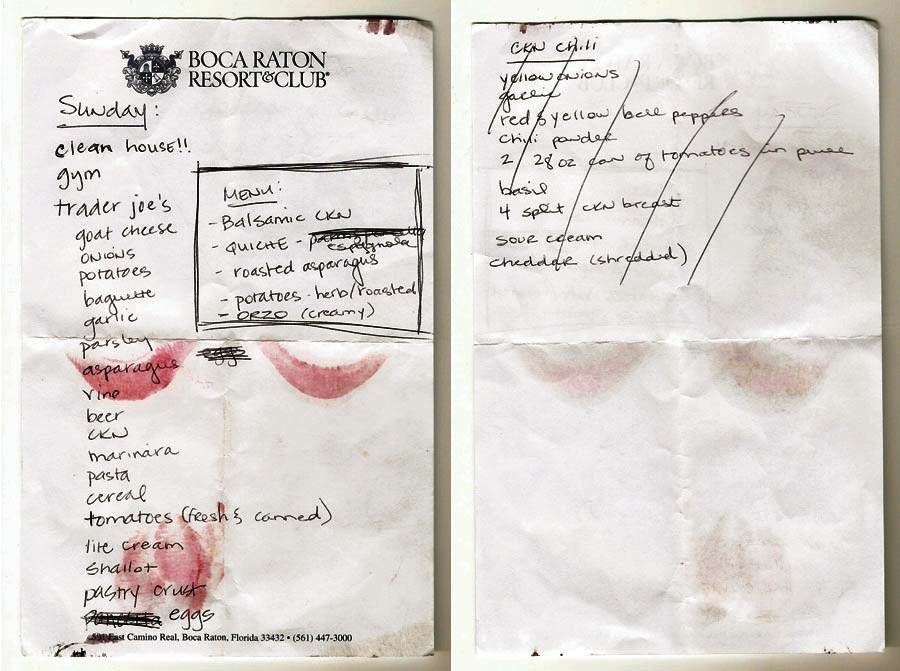 BOCA RATON
RESORT & CLUB®
Sunday:
clean house!!
gym
trader joe's
goat cheese
onions
potatoes
baguette
garlic
parsley
asparagus
vino
beer
CKN
marinara
pasta
cereal
tomatoes (fresh & canned)
lite cream
shallot
pastry crust
pancetta eggs
501 East Camino Real, Boca Raton, Florida 33432 • (561) 447-3000
MENU:
- Balsamic CKN
- QUICHE -
espagnola
- roasted asparagus
- potatoes - herb/roasted
- ORZO (creamy)
eggs
CKN chili
yellow onions
garlic
red & yellow bell peppers
chili powder
2 28 oz can of tomatoes in puree
basil
4 split CKN breast
sour cream
cheddar (shredded)